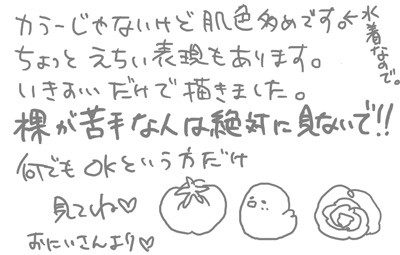 カラーじゃないけど肌色多めです。←水着なので。
ちょっとえちい表現もあります。
いきおいだけで描きました。
裸が苦手な人は絶対に見ないで!!
何でもOKという方だけ
見てね♡
おにいさんより♡